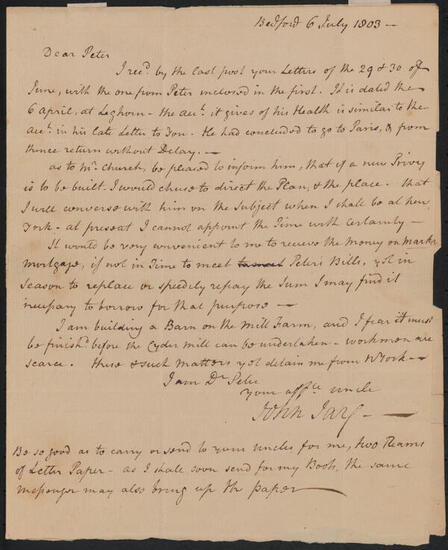 Bedford 6 July 1803 —
Dear Peter
I recd. by the last post your Letters of the 29 & 30 of
June, with the one from Peter inclosed in the first. It is dated the
6 April, at Leghorn - the acct. it gives of his Health is similar to the
acct. in his late Letter to you. He had concluded to go to Paris, & from
thence return without Delay. —
as to Mr. Church, be pleased to inform him, that if a new Privy
is to be built I would chuse to direct the Plan, & the place. That
I will converse with him on the Subject when I shall be at new
York - at present I cannot appoint the Time with certainty —
It would be very convenient to me to receive the money on
mortgage, if not in Time to meet Peter's Bills, yet in
Season to replace or speedily repay the Sum I may find it
necessary to borrow for that purpose —
I am building a Barn on the Mill Farm, and I fear it must
be finishd. before the Cyder mill can be undertaken - workmen are
scarce. These & such matters yet detain me from NYork —
I am Dr. Peter
your affte. uncle
John Jay —
Be so good as to carry or send to your uncles for me, two Reams
of Letter Paper - as I shall soon send for my Books, the same
messenger may also bring up the paper —